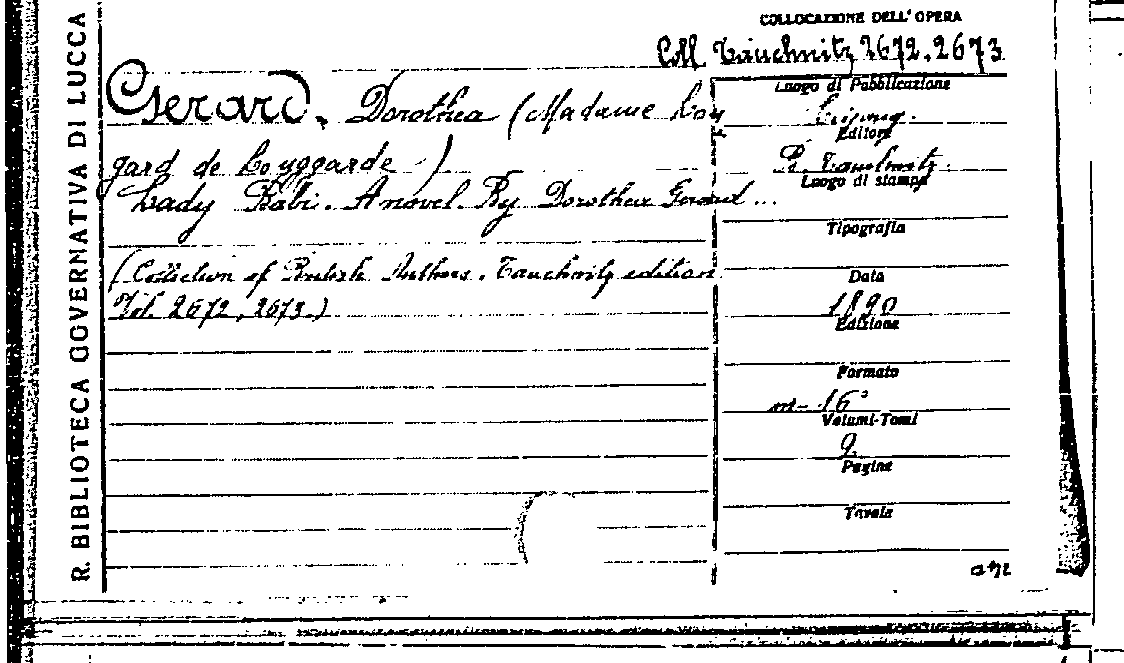 R. BIBLIOTECA GOVERNATIVA DI LUCCA
COLLOCAZIONE DELL'OPERA
Coll. Tauchnitz 2672.2673
Gerard, Dorothea (Madame Lon
gard de Longgarde)
Lady Babi. A novel. By Dorothea Gerard...
(Collection of British Authors. Tauchnitz edition
Vol. 2672, 2673.)
Luogo di Pubblicazione
Leipzig.
Editore
B. Tauchnitz.
Luogo di stampa
Tipografia
Data
1890
Edizione
Formato
in-16°
Volumi-Tomi
2
Pagine
Tavole